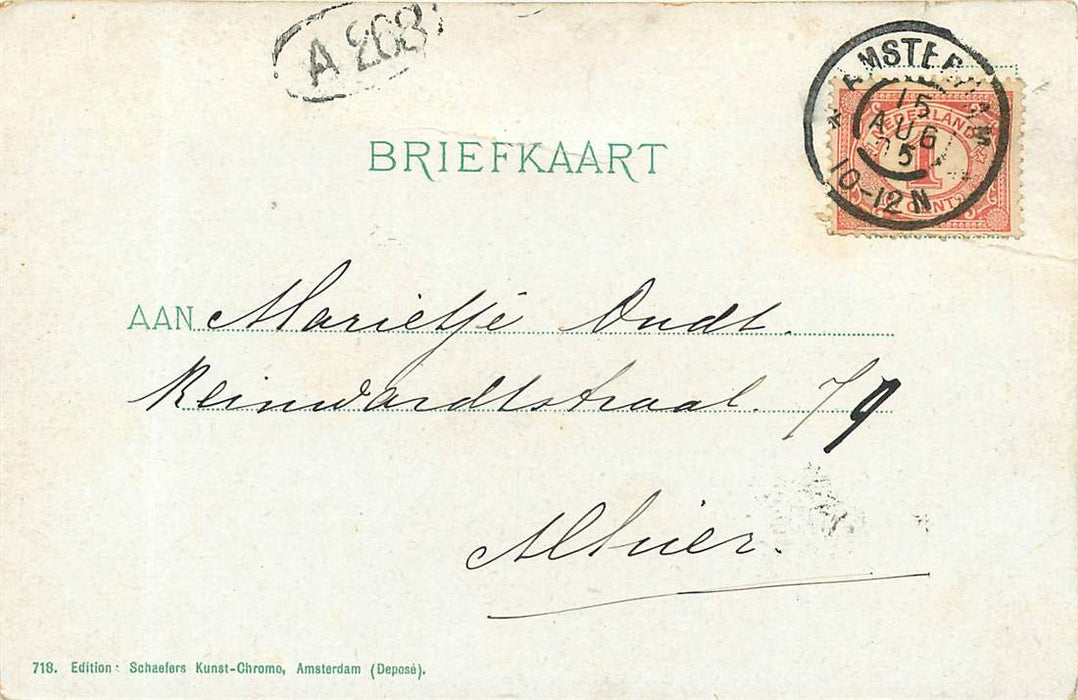 A 268
AMSTERDAM
15
AUG
05
10-12 N
NEDERLAND
1
CENT
BRIEFKAART
AAN Marietje Oudt.
Reinwardtstraat. 79
Alhier.
718. Edition: Schaefers Kunst-Chromo, Amsterdam (Deposé).